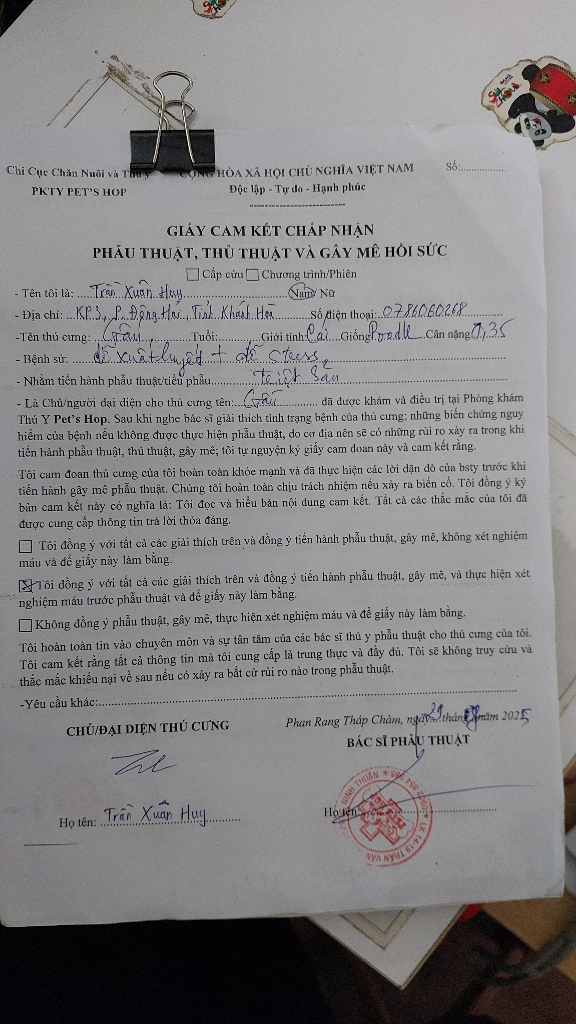 Chi Cục Chăn Nuôi và Thú y CỘNG HÒA XÃ HỘI CHỦ NGHĨA VIỆT NAM Số:................
PKTY PET'S HOP Độc lập - Tự do - Hạnh phúc
GIẤY CAM KẾT CHẤP NHẬN
PHẪU THUẬT, THỦ THUẬT VÀ GÂY MÊ HỒI SỨC
☐ Cấp cứu ☐ Chương trình/Phiên
- Tên tôi là: Trần Xuân Huy Nam/ Nữ
- Địa chỉ: KP3, P. Đông Hải, Tỉnh Khánh Hòa Số điện thoại: 0786060268
-Tên thú cưng: Gấu Tuổi: Giới tính Cái Giống Poodle Cân nặng 0,35
- Bệnh sử: dễ xuất huyết + dễ stress
- Nhằm tiến hành phẫu thuật/tiểu phẫu triệt sản
- Là Chủ/người đại diện cho thú cưng tên: Gấu , đã được khám và điều trị tại Phòng khám
Thú Y Pet's Hop. Sau khi nghe bác sĩ giải thích tình trạng bệnh của thú cưng; những biến chứng nguy
hiểm của bệnh nếu không được thực hiện phẫu thuật, do cơ địa nên sẽ có những rủi ro xảy ra trong khi
tiến hành phẫu thuật, thủ thuật, gây mê; tôi tự nguyện ký giấy cam đoan này và cam kết rằng.
Tôi cam đoan thú cưng của tôi hoàn toàn khỏe mạnh và đã thực hiện các lời dặn dò của bsty trước khi
tiến hành gây mê phẫu thuật. Chúng tôi hoàn toàn chịu trách nhiệm nếu xảy ra biến cố. Tôi đồng ý ký
bản cam kết này có nghĩa là: Tôi đọc và hiểu bản nội dung cam kết. Tất cả các thắc mắc của tôi đã
được cung cấp thông tin trả lời thỏa đáng.
☐ Tôi đồng ý với tất cả các giải thích trên và đồng ý tiến hành phẫu thuật, gây mê, không xét nghiệm
máu và để giấy này làm bằng.
☒ Tôi đồng ý với tất cả các giải thích trên và đồng ý tiến hành phẫu thuật, gây mê, và thực hiện xét
nghiệm máu trước phẫu thuật và để giấy này làm bằng.
☐ Không đồng ý phẫu thuật, gây mê, thực hiện xét nghiệm máu và để giấy này làm bằng.
Tôi hoàn toàn tin vào chuyên môn và sự tận tâm của các bác sĩ thú y phẫu thuật cho thú cưng của tôi.
Tôi cam kết rằng tất cả thông tin mà tôi cung cấp là trung thực và đầy đủ. Tôi sẽ không truy cứu và
thắc mắc khiếu nại về sau nếu có xảy ra bất cứ rủi ro nào trong phẫu thuật.
-Yêu cầu khác:
Phan Rang Tháp Chàm, ngày 29 tháng năm 2025
CHỦ/ĐẠI DIỆN THÚ CƯNG BÁC SĨ PHẪU THUẬT
Họ tên: Trần Xuân Huy Họ tên: